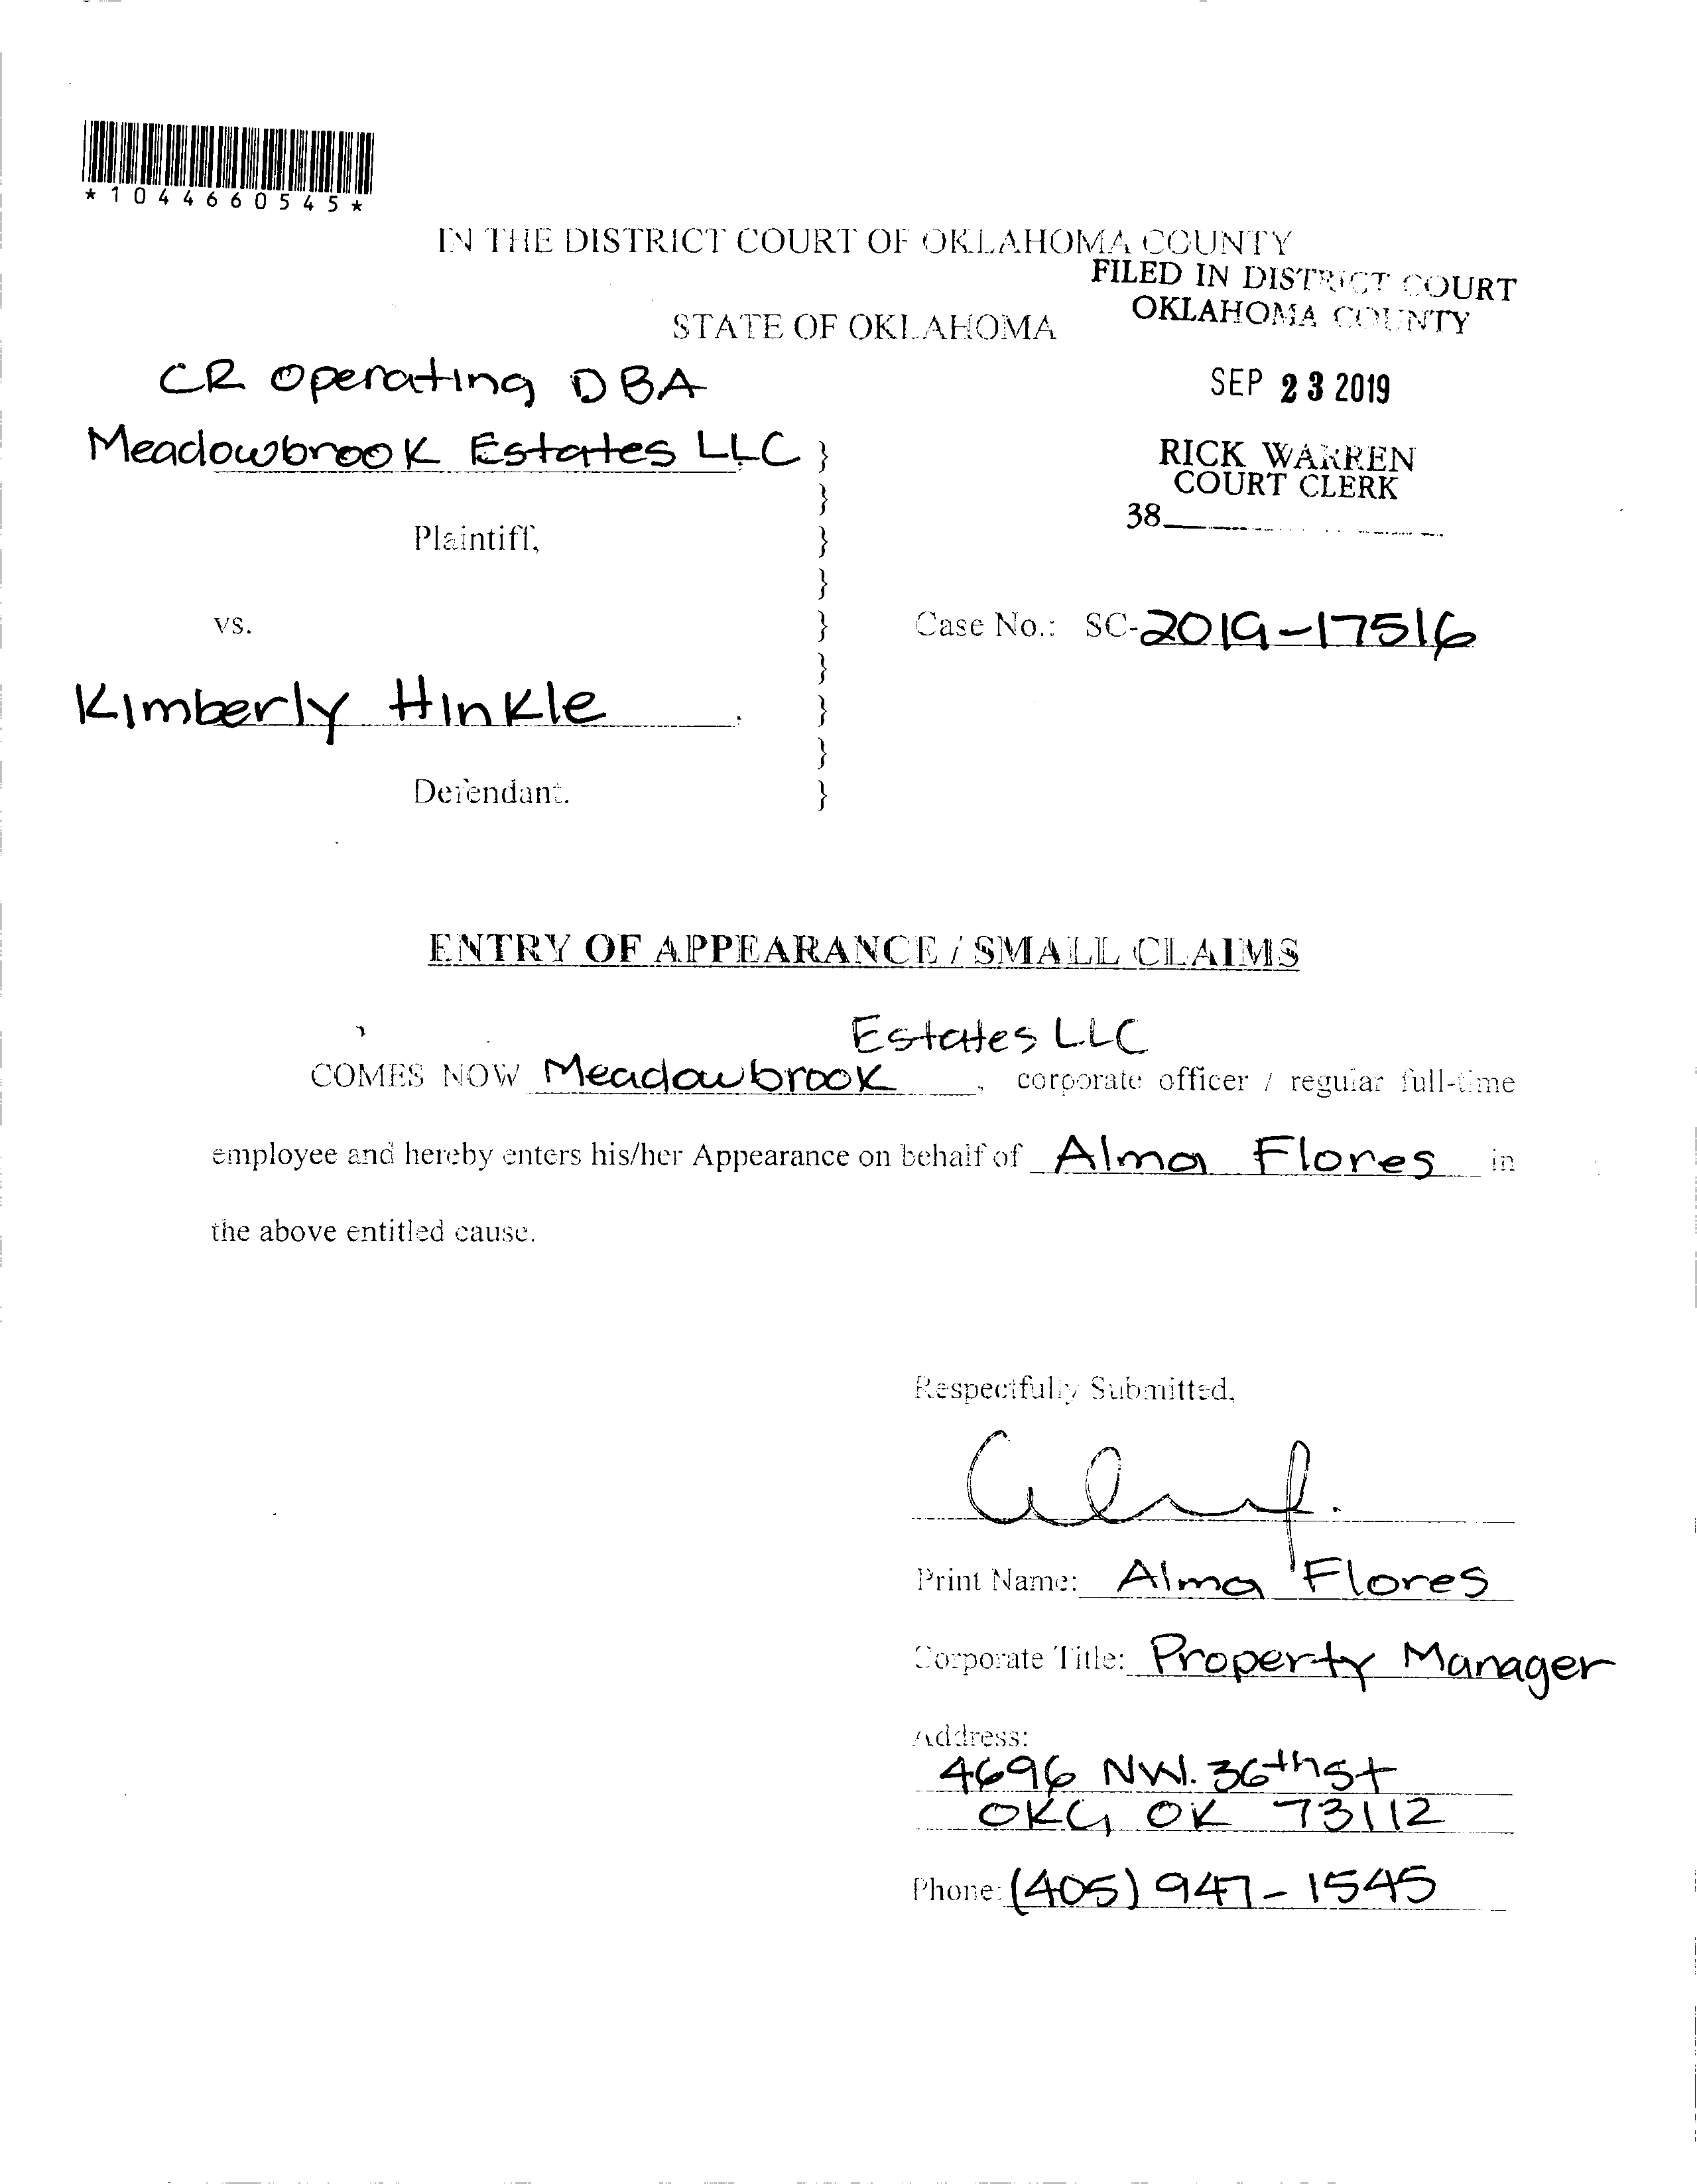 *1044660545*
IN THE DISTRICT COURT OF OKLAHOMA COUNTY
FILED IN DISTRICT COURT
OKLAHOMA COUNTY
STATE OF OKLAHOMA
SEP 23 2019
CR Operating DBA
Meadowbrook Estates LLC }
RICK WARREN
COURT CLERK
38
}
Plaintiff, }
}
vs. } Case No.: SC-2019-17516
}
Kimberly Hinkle , }
}
Defendant. }
ENTRY OF APPEARANCE / SMALL CLAIMS
Estates LLC
COMES NOW Meadowbrook , corporate officer / regular full-time
employee and hereby enters his/her Appearance on behalf of Alma Flores in
the above entitled cause.
Respectfully Submitted,
Print Name: Alma Flores
Corporate Title: Property Manager
Address:
4696 NW. 36th St
OKC, OK 73112
Phone: (405) 947-1545